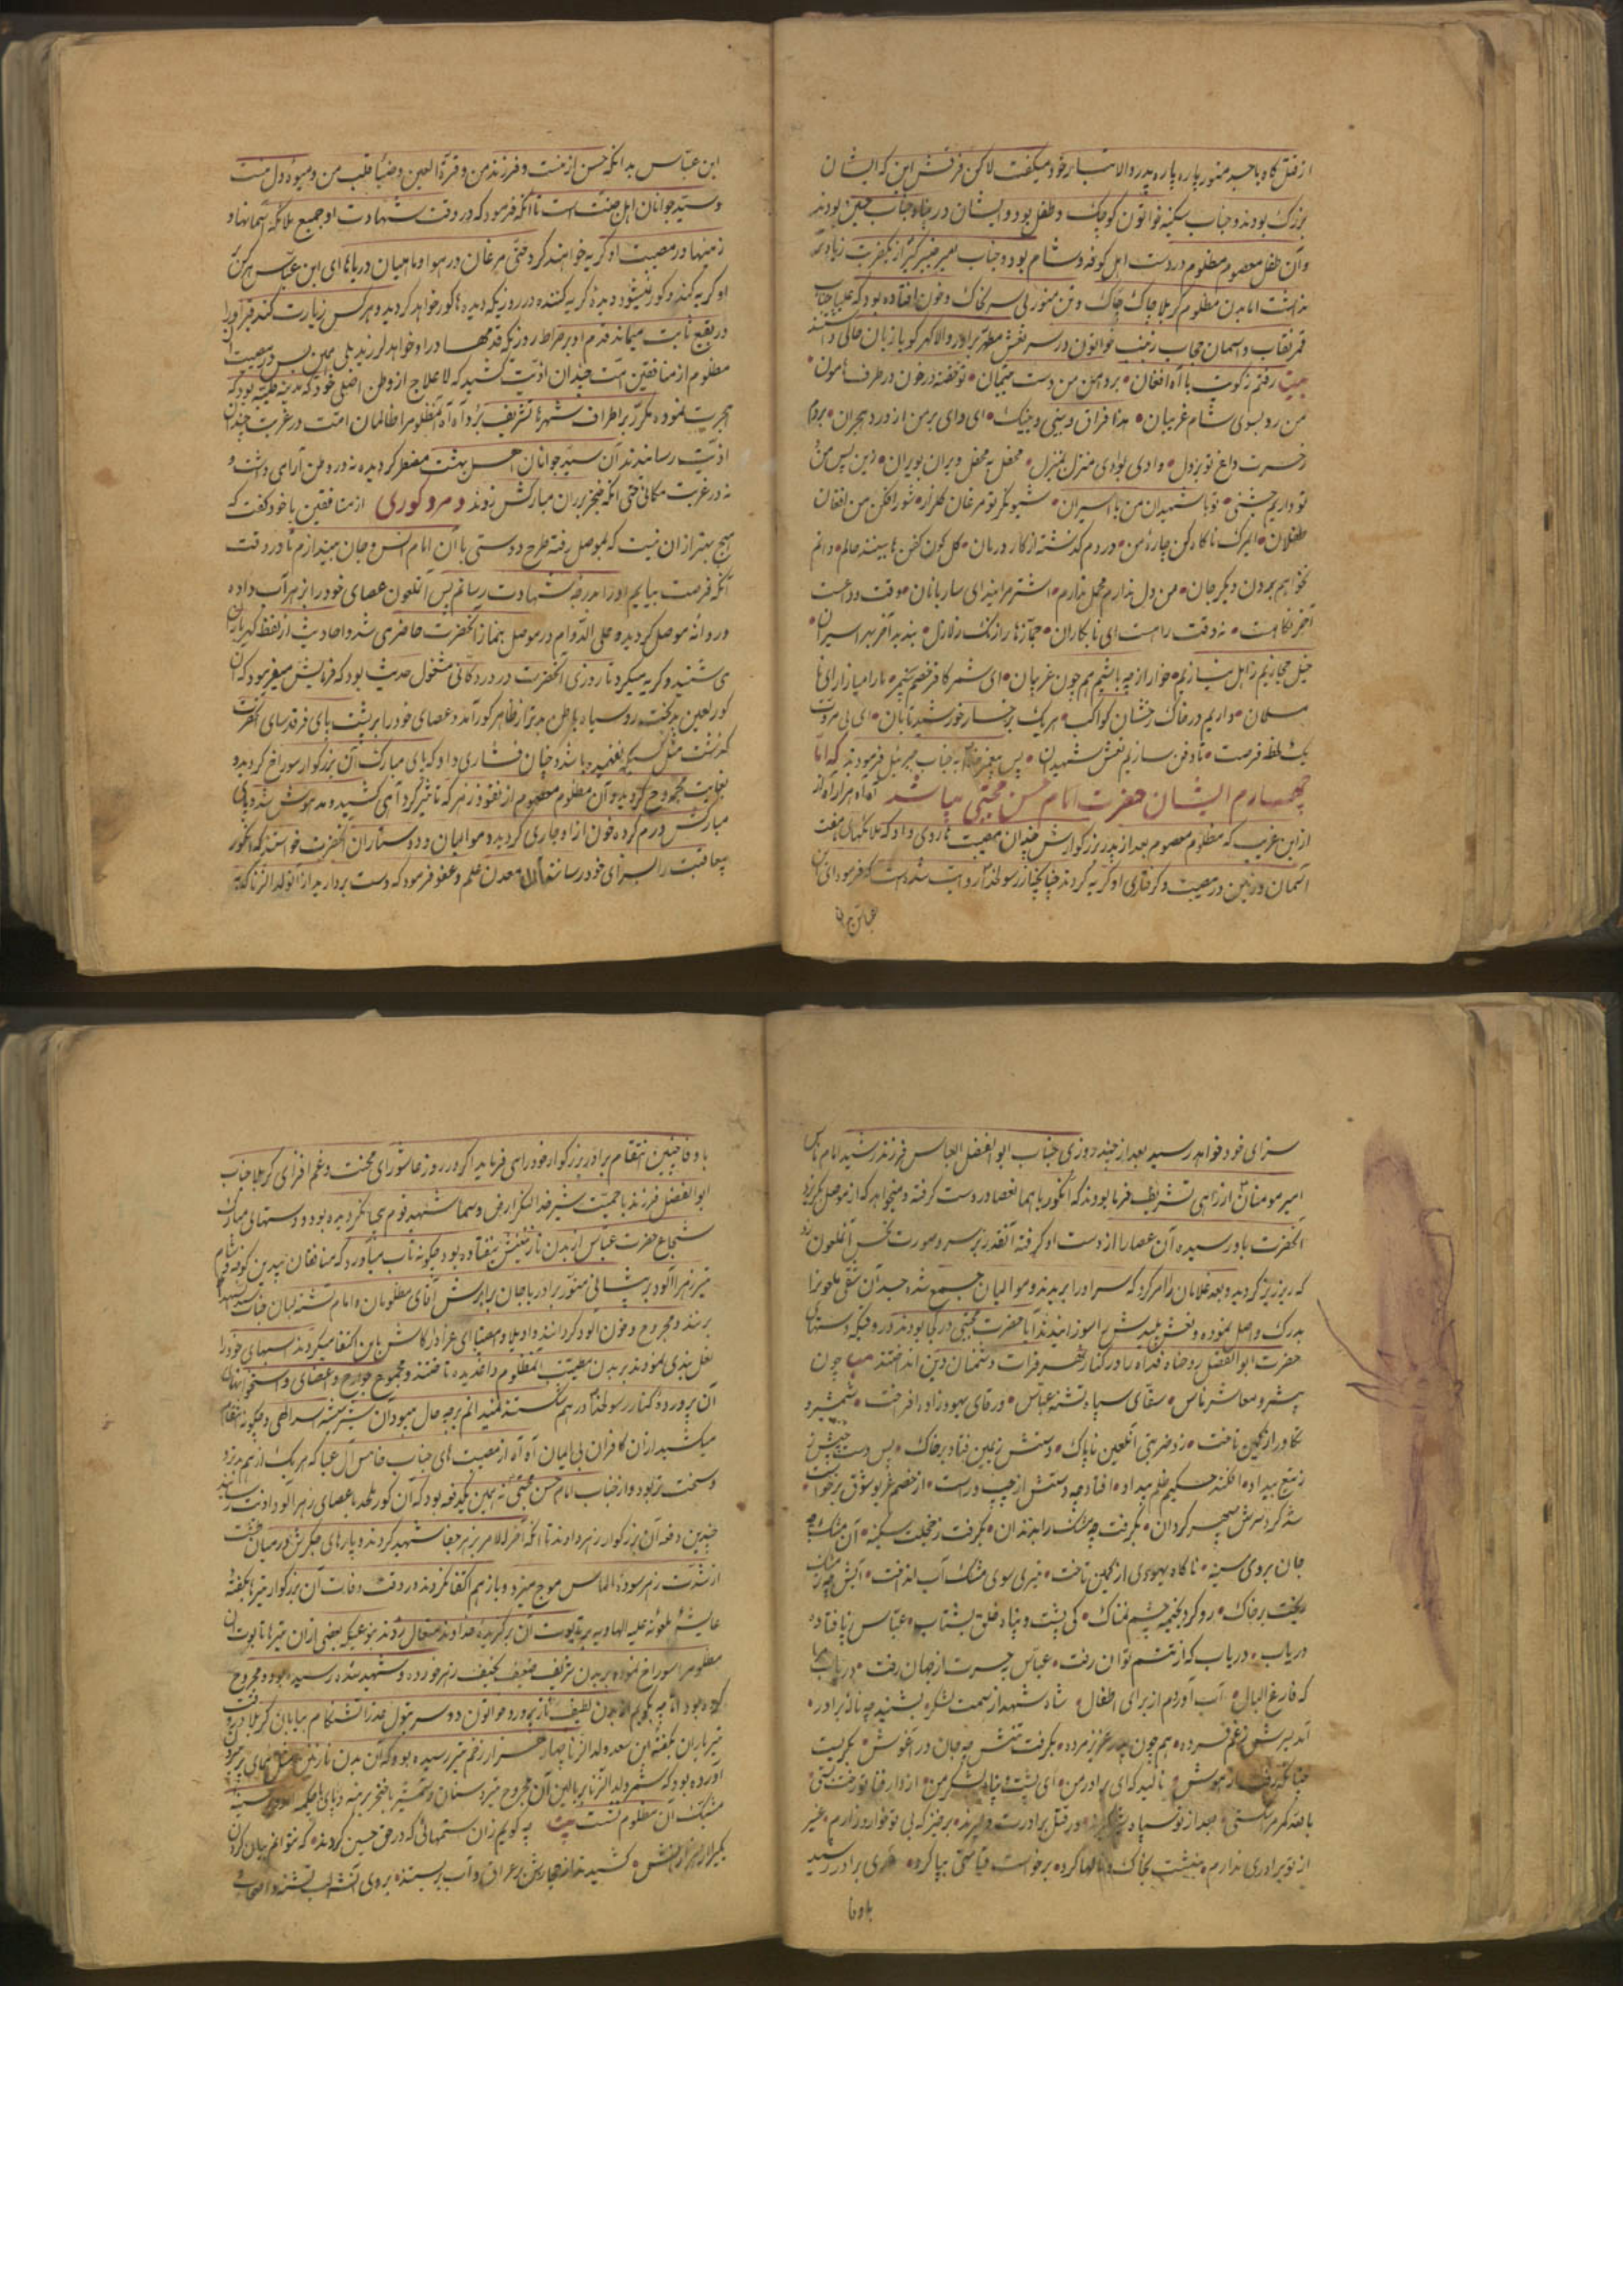 از قتل گاه با جسد منور پاره پاره پدر والا تبار خود میگفت لاکن فرقش این که ایشان
بزرک بودند و جناب سکینه خواتون کوچک و طفل بود و ایشان در پناه جناب حسین بودند
وآن طفل معصوم مظلوم در دست اهل کوفه و شام بود و جناب بغیر از یکضربت زیاده
نداشت اما بدن مظلوم کربلا چاک چاک و تن منور بی سر بخاک و خون افتاده بود که علیا جناب
قمر نقاب و اسمان حجاب زینب خواتون در سر نعش مطهر برادر والا کهر کویا زبان حالی داشتند
بیت رفتم ز کویت با آه افغان • بردامن من دست یتیمان • تو خفته در خون در طرف هامون •
من رو بسوی شام غریبان • هذا فراق و بینی و بینک • ای وای بر من از درد هجران • بردم
ز حسرت داغ تو بر دل • وادی بوادی منزل بمنزل • محفل به محفل ویران بویران • زین پس من
تو داریم جشنی • تو با شهیدان من با اسیران • شیون کر تو مرغان کلزار • شور افکن من افغان
طفلان • ایمرک ناکاه کن چاره من • دردم کذشته از کار درمان •
نخواهم بردن دیکر جان • من دل ندارم محمل ندارم • اشتر مرانید ای ساربانان موقت وداعست
آخر نکاهست • نه وقت راهست ای نابکاران •
خیل حجازیم ز اهل نیازیم • خوار از چه باشیم هم چون غریبان • ای شمر کافر
مسلمان • داریم در خاک رخشان کواکب • هریک برخسار خورشید تابان • ای بی مروت
یک لحظه فرصت • تا دفن سازیم نعش شهیدان • پس پیغمبر خدا به جناب جبرئیل فرمودند که اما
چهارم ایشان حضرت امام حسن مجتبی میباشد آه آه هزار آه از
از این غریب که مظلوم معصوم بعد از پدر بزرکوارش چندان مصیبت ها روی داد که ملائکهای هفت
آسمان و زمین در مصیبت و کرفتاری او کریه کردند چنانچه از رسولخدا روایت شده است که فرمود ای ابن
عباس بدا
ابن عباس بدانکه حسن از منست و فرزند من و قرة العین و ضیاء قلب من و میوه دل منست
و سید جوانان اهل جنت است تا آنکه فرمود که در وقت شهادت او جمیع ملائکه آسمانها و
زمینها در مصیبت او کریه خواهند کرد حتی مرغان در هوا و ماهیان در یا ها ای ابن عباس هر کس
او کریه کند کور نمیشود دیده کریه کننده در روزیکه دیده ها کور خواهد کردید و هر کس زیارت کند قبر اورا
در بقیع ثابت میماند قدم او بر صراط روزیکه قدمها در او خواهد لرزید بلی
مظلوم از منافقین امت چندان اذیت کشید که لاعلاج از وطن اصلی خود که مدینه طیبه بود که
هجرت نموده مکرر بر اطراف شهرها تشریف برد آه آه آنمظلومرا ظالمان امت در غربت چندان
اذیت رسانندند آن سید جوانان اهل بهشت مضطر کردیده نه در وطن آرامی داشت و
نه در غربت مکانی حتی آنکه خنجر بر ران مبارکش زدند و مرد کوری از منافقین با خود کفت که
هیچ بهتر از ان نیست که بموصل رفته طرح دوستی با آن امام انس و جان میندازم تا در وقت
آنکه فرصت بیابم او را بدرجه شهادت رسانم پس آنملعون عصای خود را بزهر آب داده
و روانه موصل کردیده و علی الدوام در موصل بنماز آنحضرت حاضر می شد و احادیث از لفظ کهربار ان
می شنید و کریه میکرد تا روزی آنحضرت در در دکانی مشغول حدیث بود که فرمایش میفرمود که آن
کور لعین بدبخت رو سیاه باطن بدتر از ظاهر کور آمد و عصای خود را بر پشت پای فرقدسای آنحضرت
که داشت مثل کسیکه نفهمیده باشد و چنان فشاری داد که پای مبارک آن بزرکوار سوراخ کردیده و
بغایت مجروح کردید و آن مظلوم معصوم از نفوذ زهر که تاثیر کرد آهی کشید و مدهوش شد و پای
مبارکش ورم کرده خون از او جاری کردید و موالیان و دوستاران آنحضرت خواستند که آنکور
بیعاقبت را بسزای خود رسانند آن معدن علم و عفو فرمود که دست بردارید از آنولد الزنا که
سزای خود خواهد رسید بعد از چند روزی جناب ابو الفضل العباس فرزند رشید امام ناس
امیر مومنان از راهی تشریف فرما بودند که آنکور با همان عصا در دست کرفته و میخواهد که از موصل بکریزد
آنحضرت باو رسیده آن عصارا از دست او کرفته آنقدر بر سر و صورت نحس آنملعون زد
که ریز ریز کردید و بعد غلامان را امر کرد که سر اورا بریدند و موالیان جمع شده جسد آن شقی ملعونرا
بدرک واصل نموده و نعش پلیدش را سوزانیدند آیا حضرت مجتبی در کجا بودند در وقتیکه دستهای
حضرت ابو الفضل روحنا فداه را در کنار نهر فرات دشمنان دین انداختند بیت چون
پیشرو معاشر ناس • سقای سپاه تشنه عباس • شمشیر و
نکاور از کمین تاخت • زد ضربتی آنلعین ناپاک • دستش بزمین فتاد بر خاک • پس دست
ز تیغ بیداد • افکند حکیم ظلم بیداد • افتاد چه دستش از چپ و راست •
شد کرد سرش سپهر کردان • بکرفت چه مشک را بدندان • بکرفت ز خجلت سکینه • آن مشک چه
جان بروی سینه • ناکاه یهودی از کمین تاخت • تیری سوی مشک آب انداخت • آبش چه ز مشک
بیخت بر خاک • رو کرد بخیمه چشم نمناک • کی پشت و پناه خلق بشتاب • عباس ز پا فتاده
دریاب • دریاب که از تنم توان رفت • عباس به حسرت از جهان رفت • دریاب مرا
که فارغ البال • آب آوردم از برای اطفال • شاه شهدا ز سمت لشکر • بشنید چه ناله برادر •
آمد بسرش ز غم فسرده • هم چون پدر عزیز مرده • بکرفت تنش چه جان در آغوش • بکریست
چنانکه رفت از هوش • نالید که ای برادر من • ای پشت و پناه لشکر من • از دار فنا تو رخت بستی •
بالله کمر مرا شکستی • بعد از تو سپاه
از تو برادری ندارم • بنشست بخاک و نالها کرد • برخواست قیامتی بپا کرد • برادر رشید
باوفا
باوفا چنین انتقام برادر بزرکوار خود را می فرماید اکر در روز عاشورای محنت و غم افزای کربلا جناب
ابوالفضل فرزند با حمیت شیر خدا لنکر ارض و سما شهید قوم بیحیا نکردیده بود و دستهای مبارک
شجاع حضرت عباس از بدن نازنینش نیفتاده بود چکونه تاب میآورد که منافقان بیدین کوفه و شام
تیر زهر آلود بر پیشانی منور برادر با جان برابرش آقای مظلومان و امام تشنه لبان جناب سید الشهدا
بزنند و مجروح و خون آلود کردانند واویلا وامصیبتا ای عزاداران کاش باین اکتفا میکردند اسبهای خود را
نعل بندی نمودند بر بدن مصیبت آنمظلوم داغدیده تاختند و مجموع جوارح و اعضای و استخوانهای
آن پرورده کنار رسولخدا در هم شکستند نمیدانم برچه حال میبود آن شیر بیشه اسد الهی و چکونه انتقام
میکشید از ان کافران بی ایمان آه آه از مصیبت های جناب خامس آل عبا که هر یک از هم بدتر و
و سخت تر بود و از جناب امام حسن مجتبی نه همین یکدفعه بود که آن کور ملحد با عصای زهر آلود اذیت رسانید
چندین دفعه آن بزرکوار زهر دادند تا آنکه آخر الامر بزهر جفا شهید کردند و پارهای جکرش در میان طشت
از شدت زهر سوده الماس موج میزد و باز هم اکتفا نکردند در وقت وفات آن بزرکوار تیرها بکفته
عایشه ملعونه علیه الهاویه بر تابوت آن برکزیده خداوند متعال زدند بنوعیکه بعضی از ان تیرها تابوت ان
مظلومرا سوراخ نموده بر بدن شریف ضعیف نحیف زهر خورده و شهید شده رسیده بود و مجروح
کرده بود اما چه بکویم از بدن لطیف ناز پرورده خواتون دو سر بتول عذرا تشنکام بیابان کربلا در وقت
تیرباران بکفته ابن سعد ولد الزنا چهار هزار زخم تیر رسیده بود که آن بدن نازنین
آورده بود که شمر ولد الزنا بر بالین آن مجروح تیر و سنان و شمشیر با خنجر برهنه و پای
مشبک آن مظلوم نشست بیت چه کویم زان ستمهائی که در حق حسین کردند • که نتوانم بیان کردن
یکی از هزارانش • کشیدند از حجازش در عراق و آب بر بستند • بروی